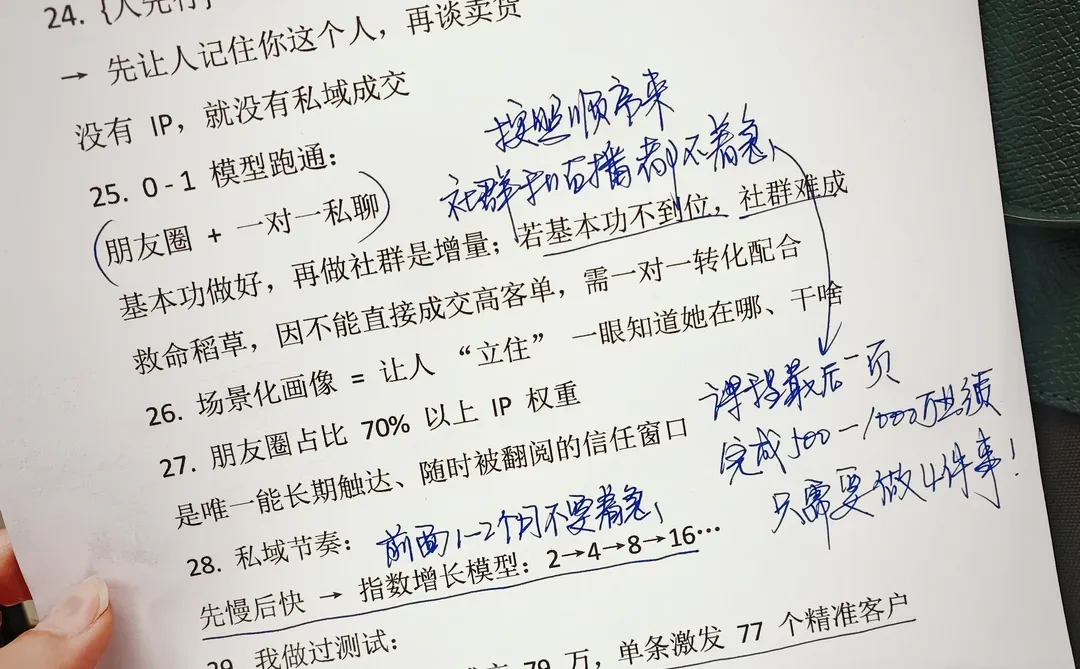 24.
→ 先让人记住你这个人，再谈卖货
没有 IP，就没有私域成交
按照顺序来
25. 0-1 模型跑通：
社群和直播都不着急、
（朋友圈 + 一对一私聊）
基本功做好，再做社群是增量；若基本功不到位，社群难成
救命稻草，因不能直接成交高客单，需一对一转化配合
26. 场景化画像 = 让人 “立住” 一眼知道她在哪、干啥
27. 朋友圈占比 70% 以上 IP 权重
课程最后一页
是唯一能长期触达、随时被翻阅的信任窗口
完成500-1000万业绩
只需要做4件事！
28. 私域节奏：
前面1-2个月不要着急、
先慢后快 → 指数增长模型：2→4→8→16…
29. 我做过测试：
79 万，单条激发 77 个精准客户